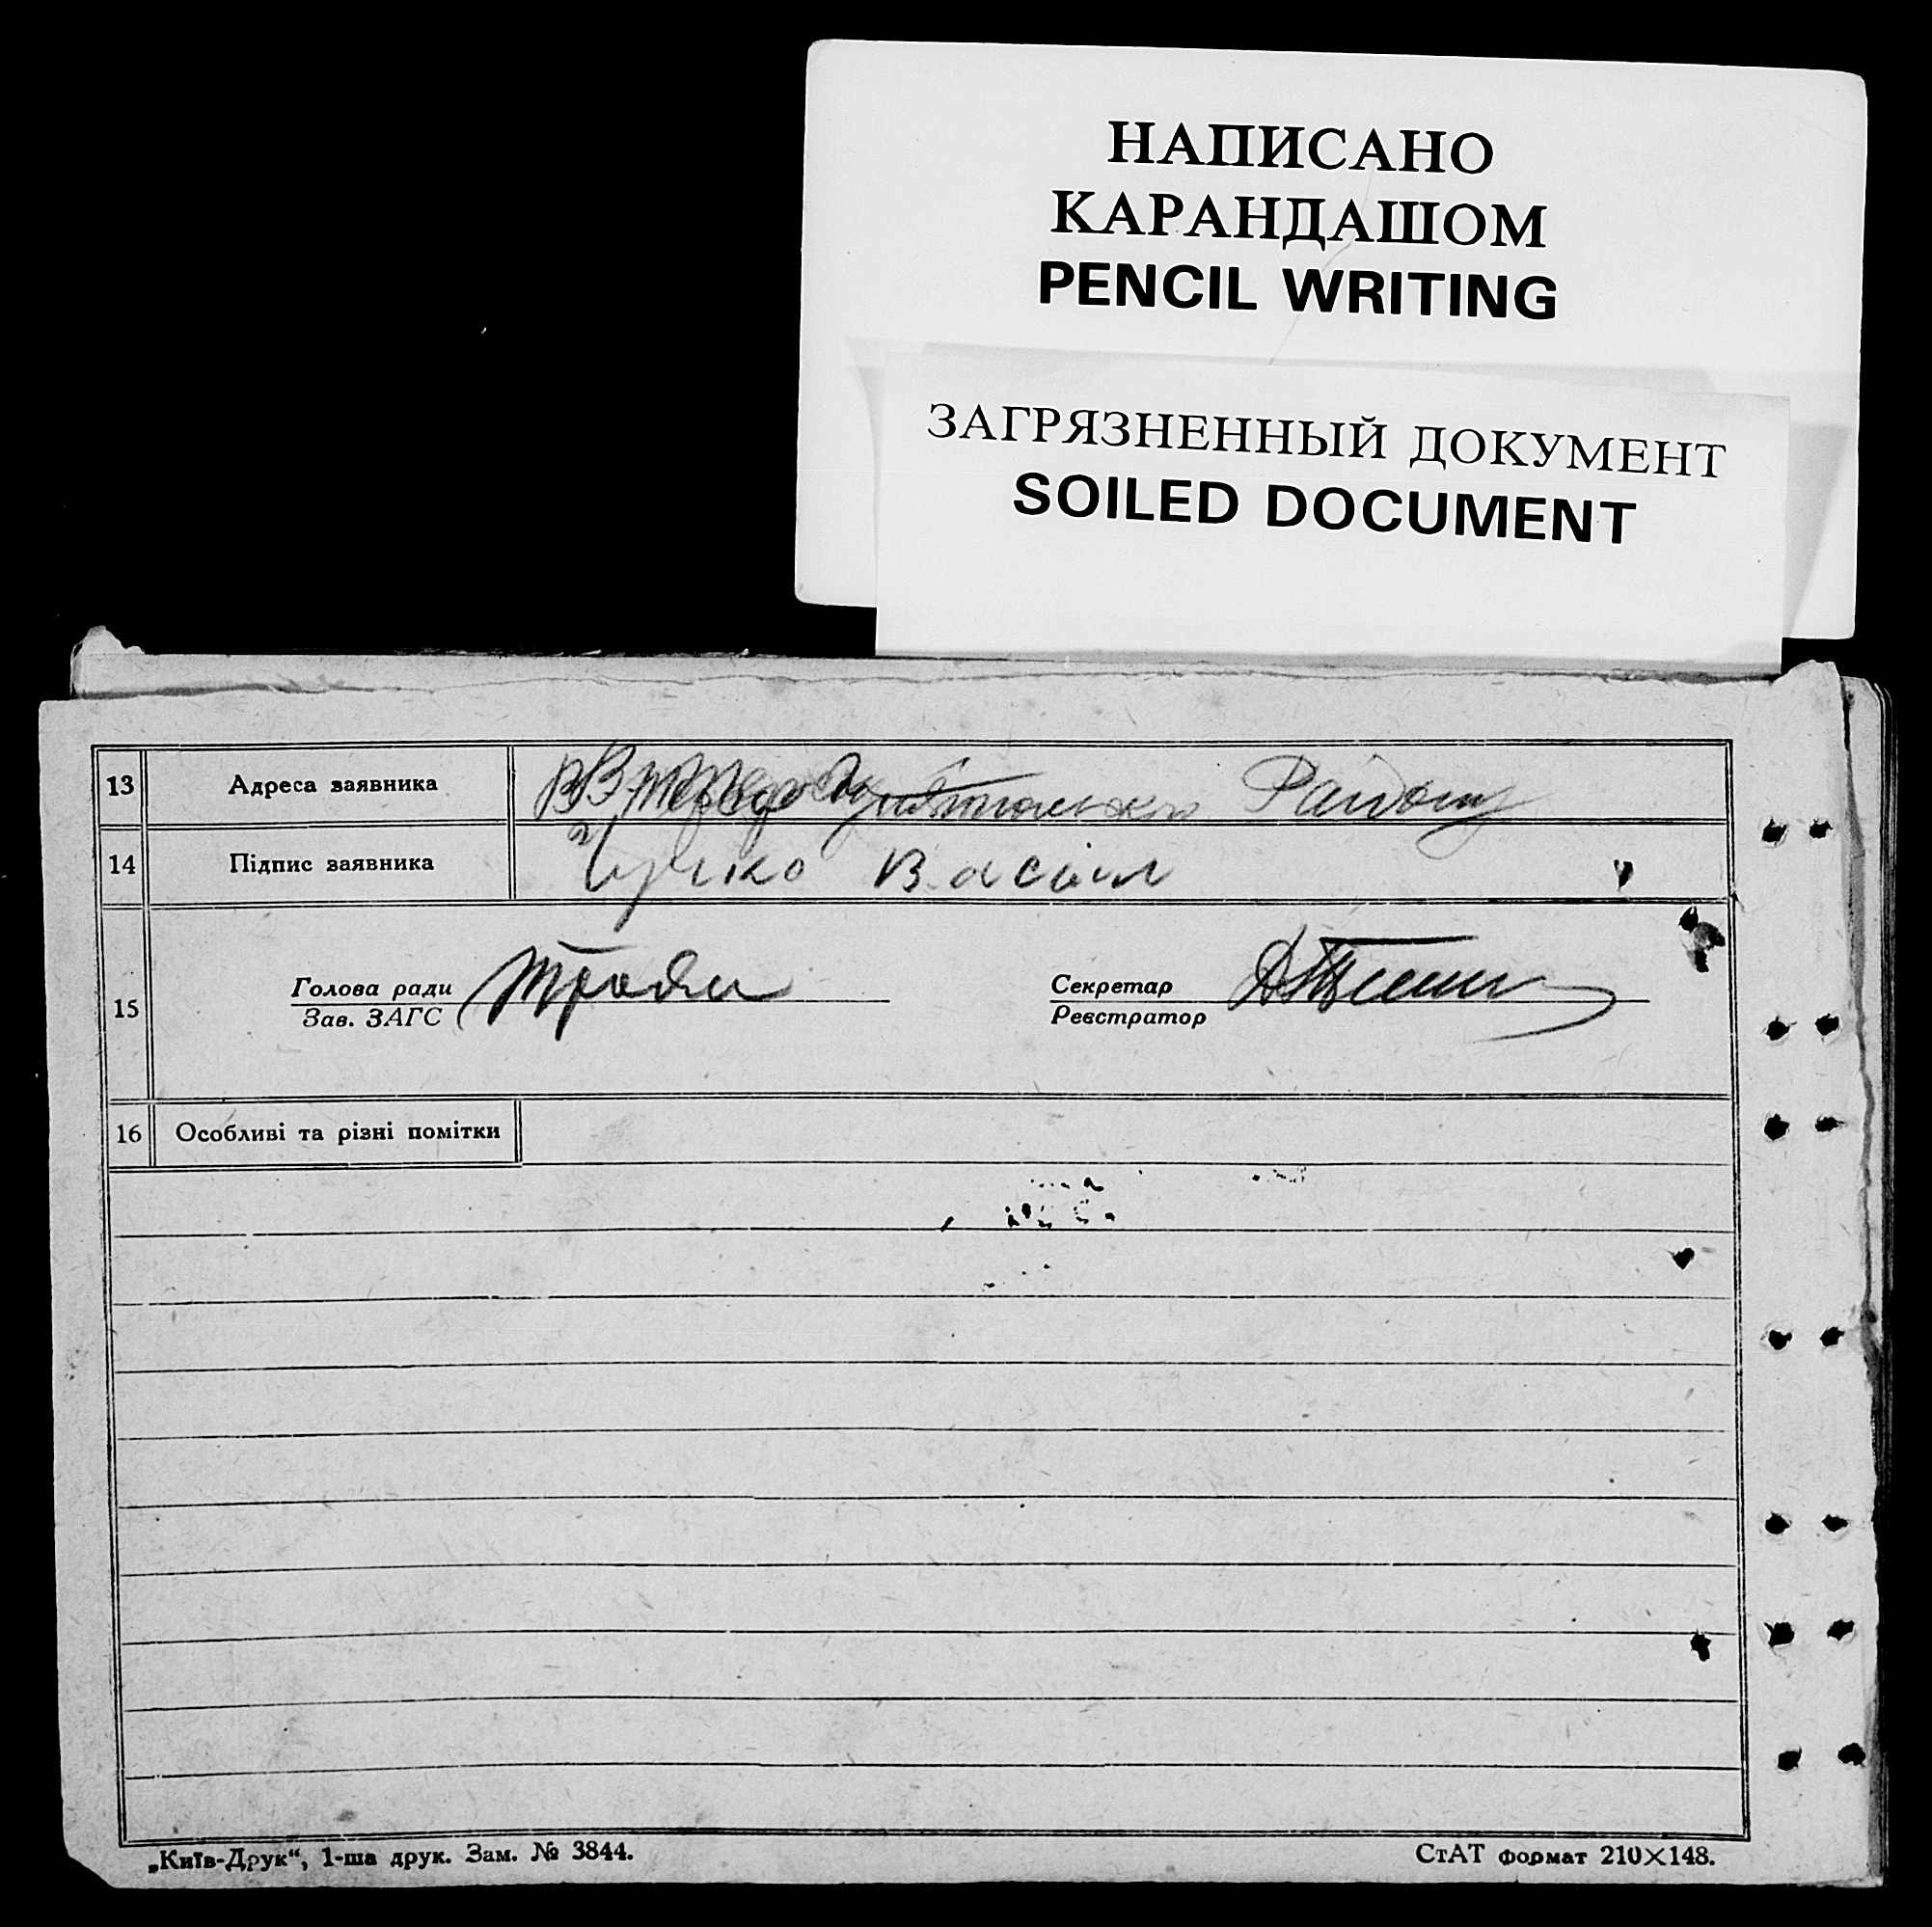 НАПИСАНО
КАРАНДАШОМ
PENCIL WRITING
ЗАГРЯЗНЕННЫЙ ДОКУМЕНТ
SOILED DOCUMENT
13 Адреса заявника Району
14 Підпис заявника Чучко Васіил
Голова ради Секретар
15 Зав. ЗАГС Реєстратор
16 Особливі та різні помітки
„Київ-Друк“, 1-ша друк. Зам. № 3844. СтАТ формат 210×148.